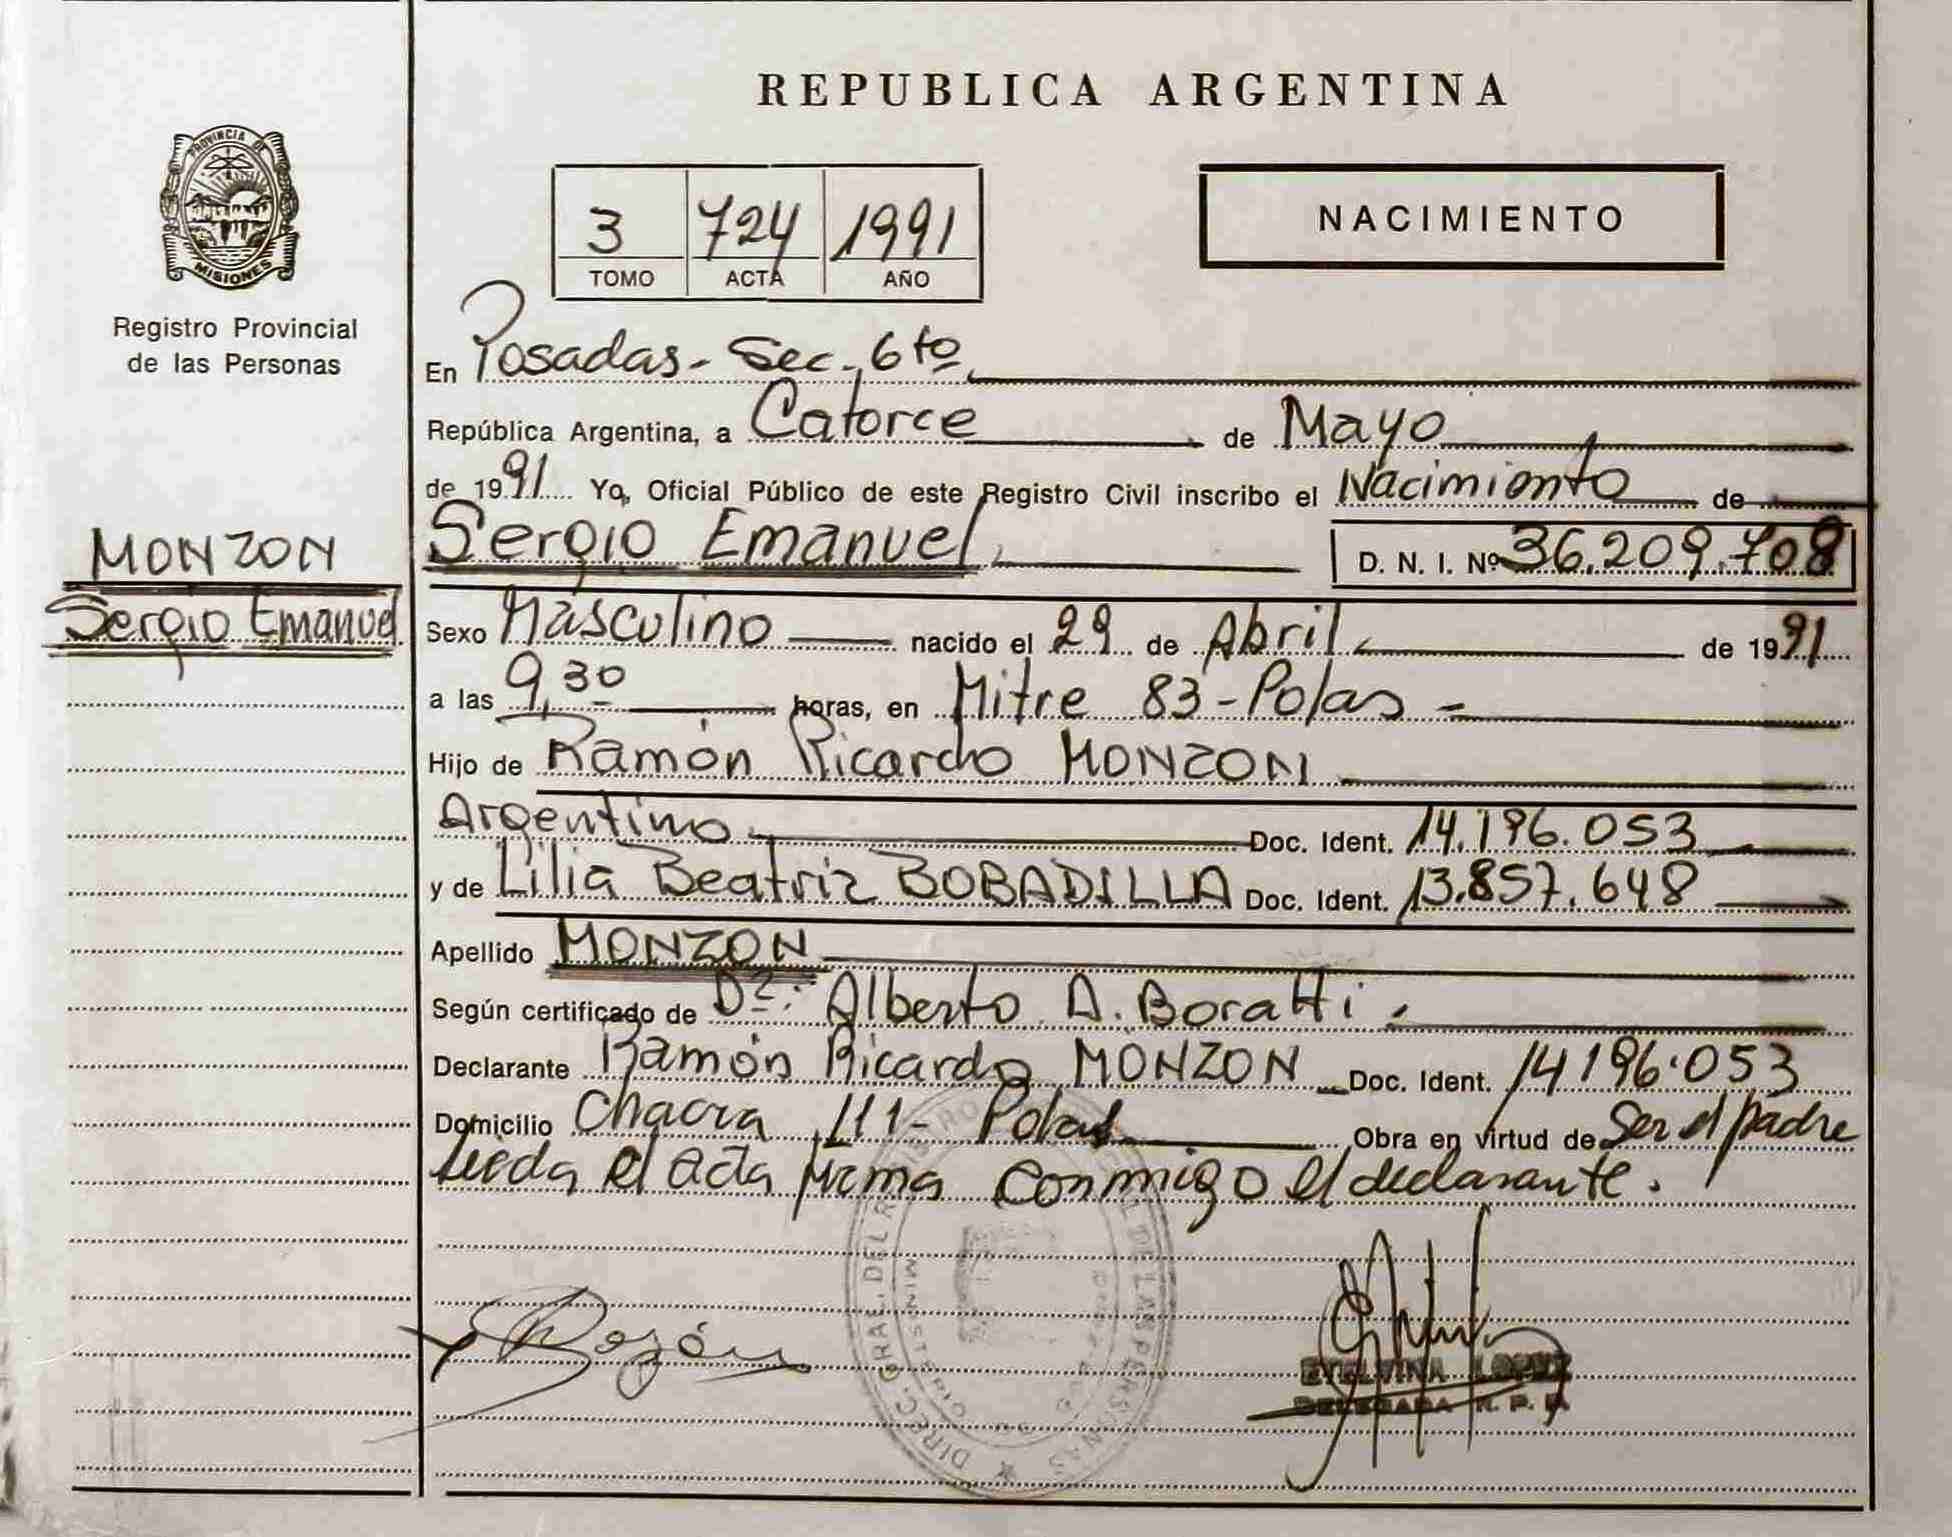 REPUBLICA ARGENTINA
PROVINCIA DE
MISIONES
Registro Provincial
de las Personas
3 724 1991
TOMO ACTA AÑO
NACIMIENTO
En Posadas - Sec. 6to
República Argentina, a Catorce de Mayo
de 1991 Yo, Oficial Público de este Registro Civil inscribo el Nacimiento de
MONZON
Sergio Emanuel
Sergio Emanuel, D. N. I. Nº 36.209.708
Sexo Masculino nacido el 29 de Abril, de 1991
a las 9,30 horas, en Mitre 83 - Pdas -
Hijo de Ramón Ricardo MONZON
Argentino Doc. Ident. 14.196.053
y de Lilia Beatriz BOBADILLA Doc. Ident. 13.857.648
Apellido MONZON
Según certificado de Dr: Alberto A. Boratti.
Declarante Ramón Ricardo MONZON Doc. Ident. 14196.053
Domicilio Chacra 111 - Pdas Obra en virtud de Ser el padre
Leida el acta firma conmigo el declarante.
DIREC. GRAL. DEL REGISTRO PROVINCIAL DE LAS PERSONAS
ETELVINA LOPEZ
DELEGADA R. P. P.